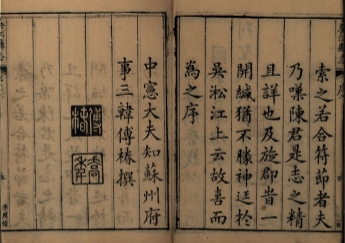 索之若合符節者夫
乃嘆陳君是志之精
且詳也及旋郡甞一
開緘猶不勝神迋於
吳淞江上云故喜而
為之序
中憲大夫知蘇州府
事三韓傅椿撰